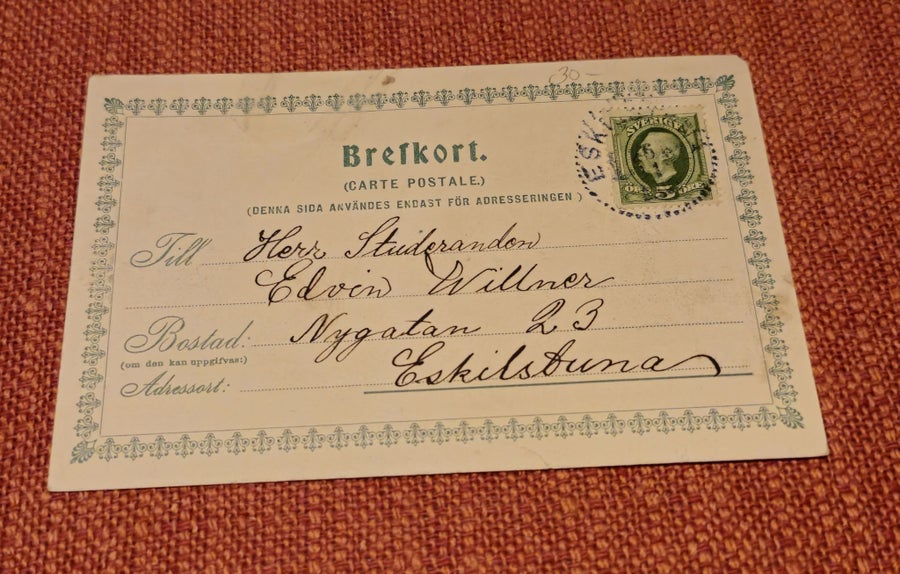 30-
Brefkort.
(CARTE POSTALE.)
(DENNA SIDA ANVÄNDES ENDAST FÖR ADRESSERINGEN)
SVERIGE
5
ÖRE
ESK
Till Herr Studeranden
Edvin Willner
Bostad: Nygatan 23
(om den kan uppgifvas:)
Eskilstuna
Adressort: